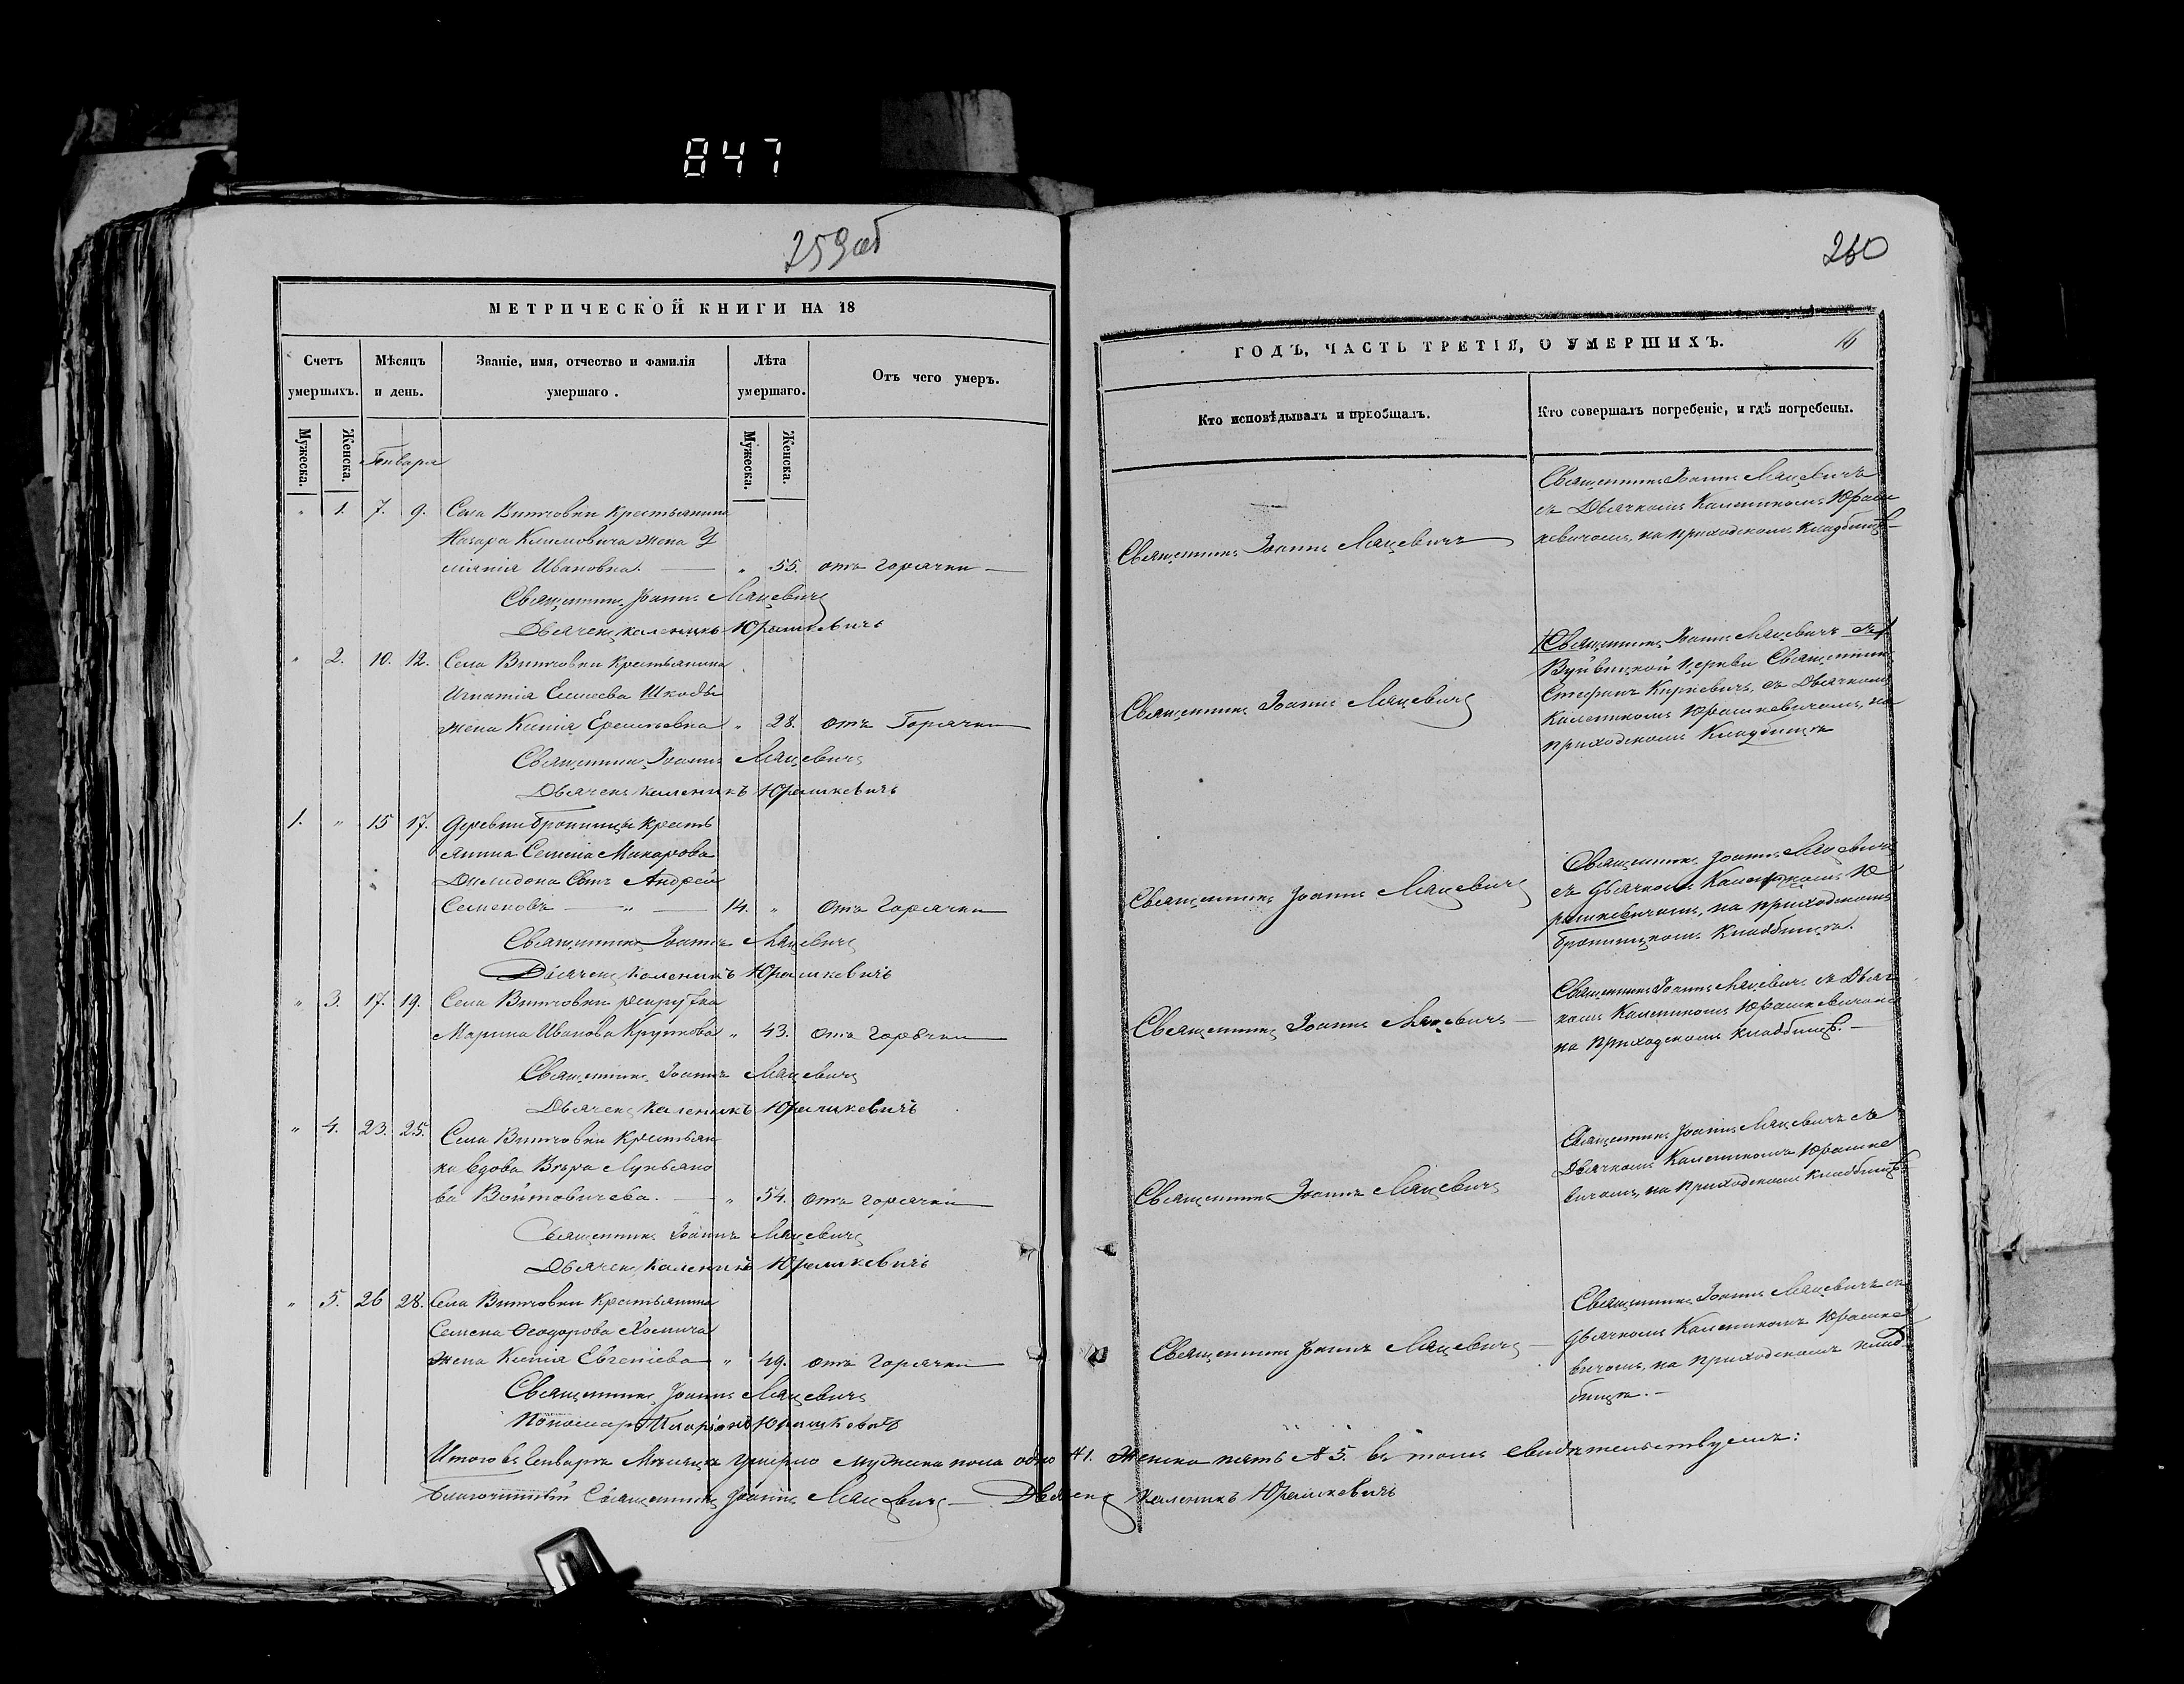 847
259об
260
МЕТРИЧЕСКОЙ КНИГИ НА 18
Счетъ умершихъ.
Мѣсяцъ и день.
Званіе, имя, отчество и фамилія умершаго.
Лѣта умершаго.
Отъ чего умеръ.
Мужеска.
Женска.
Генваря
Мужеска.
Женска.
" 1. 7. 9. Села Витчовки Крестьянина
Назара Климовича жена
Ивановна. — " 55. отъ горячки —
Священникъ Іоаннъ Мацевичъ
Дьячекъ Каленикъ Юрашкевичъ
" 2. 10. 12. Села Витчовки Крестьянина
Игнатія Елисеева Шкоды
жена Ксенія " 28. отъ Горячки
Священникъ Іоаннъ Мацевичъ
Дьячекъ Каленикъ Юрашкевичъ
1. " 15 17. Деревни Броницы Кресть
янина Семена Макарова
сынъ Андрей
Семеновъ — " — 14. " Отъ Горячки
Священникъ Іоаннъ Мацевичъ
Дьячекъ Каленикъ Юрашкевичъ
" 3. 17. 19. Села Витчовки рекрутка
Марина Иванова " 43. отъ горячки
Священникъ Іоаннъ Мацевичъ
Дьячекъ Каленикъ Юрашкевичъ
" 4. 23. 25. Села Витчовки Крестьян
ка вдова Вѣра Лукьяно
ва Войтовичева. — " 54. отъ горячки
Священникъ Іоаннъ Мацевичъ
Дьячекъ Каленикъ Юрашкевичъ
" 5. 26 28. Села Витчовки Крестьянина
Семена Ѳеодорова Хомича
жена Ксенія Евгеніева " 49. отъ Горячки
Священникъ Іоаннъ Мацевичъ
Пономарь Иларіонъ Юрашкевичъ
Итого въ Генварѣ Мѣсяцѣ умерло мужеска пола одно №1. Женска пять №5. въ томъ свидѣтельствуемъ:
Благочинный Священникъ Іоаннъ Мацевичъ — Дьячекъ Каленикъ Юрашкевичъ
ГОДЪ, ЧАСТЬ ТРЕТІЯ, О УМЕРШИХЪ.
16
Кто исповѣдывалъ и пріобщалъ.
Кто совершалъ погребеніе, и гдѣ погребены.
Священникъ Іоаннъ Мацевичъ
Священникъ Іоаннъ Мацевичъ
съ Дьячкомъ Каленикомъ Юраш
кевичомъ, на приходскомъ кладбищѣ —
Священникъ Іоаннъ Мацевичъ
Священникъ Іоаннъ Мацевичъ съ
Вуйвицкой Церкви Священник
Стефанъ Киркевичъ, съ Дьячкомъ
Каленикомъ Юрашкевичомъ, на
приходскомъ Кладбищѣ
Священникъ Іоаннъ Мацевичъ
Священникъ Іоаннъ Мацевичъ
съ дьячкомъ Каленикомъ Ю
рашкевичомъ, на приходскомъ
Броницкомъ Кладбищѣ.
Священникъ Іоаннъ Мацевичъ —
Священникъ Іоаннъ Мацевичъ съ Дьяч
комъ Каленикомъ Юрашкевичомъ
на приходскомъ кладбищѣ. —
Священникъ Іоаннъ Мацевичъ
Священникъ Іоаннъ Мацевичъ съ
Дьячкомъ Каленикомъ Юрашке
вичомъ, на приходскомъ кладбищѣ
Священникъ Іоаннъ Мацевичъ —
Священникъ Іоаннъ Мацевичъ съ
дьячкомъ Каленикомъ Юрашке
вичомъ, на приходскомъ клад
бищѣ. —